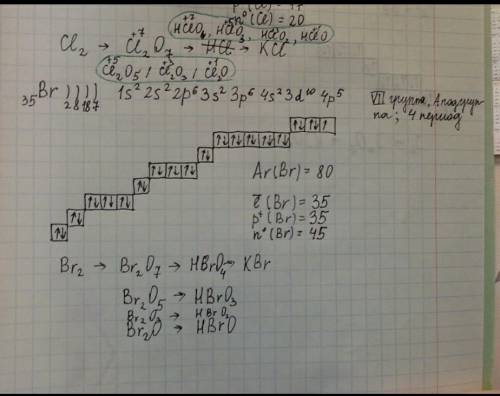 p⁺(Cl) = 17
n⁰(Cl) = 20
HClO₄, HClO₃, HClO₂, HClO
Cl₂ → Cl₂O₇ → HCl → KCl
Cl₂O₅, Cl₂O₃, Cl₂O
₃₅Br ) ) ) ) 2 8 18 7 1s² 2s² 2p⁶ 3s² 3p⁶ 4s² 3d¹⁰ 4p⁵
VII группа, А подгруп-
па; 4 период
Ar(Br) = 80
e̅(Br) = 35
p⁺(Br) = 35
n⁰(Br) = 45
Br₂ → Br₂O₇ → HBrO₄ → KBr
Br₂O₅ → HBrO₃
Br₂O₃ → HBrO₂
Br₂O → HBrO